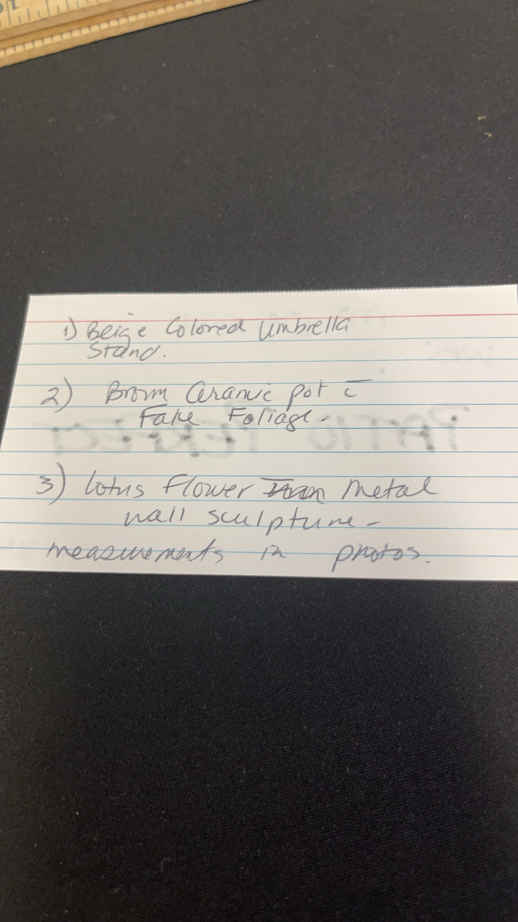 1) Beige Colored Umbrella
Stand.
2) Brown Ceramic pot c̄
Fake Foliage.
3) lotus Flower Metal
wall sculpture -
measurements in photos.
PATIO PERFECT